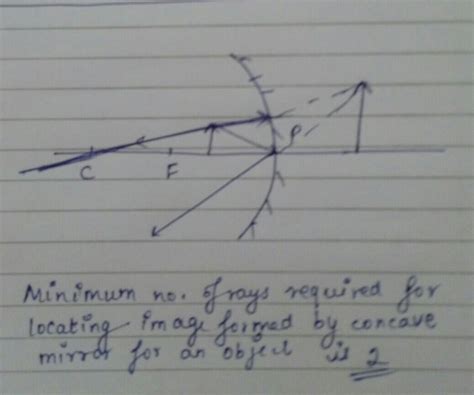 P
C F
Minimum no. of rays required for
locating image formed by concave
mirror for an object is 2